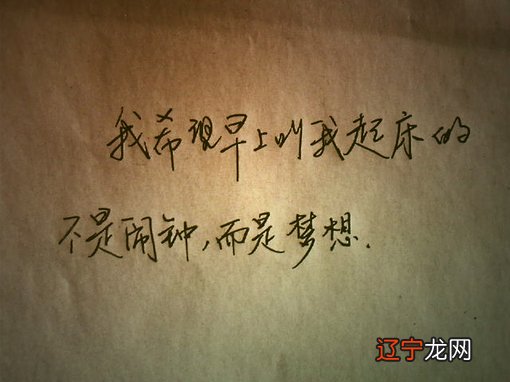 我希现早上叫我起床的
不是闹钟,而是梦想.
辽宁龙网